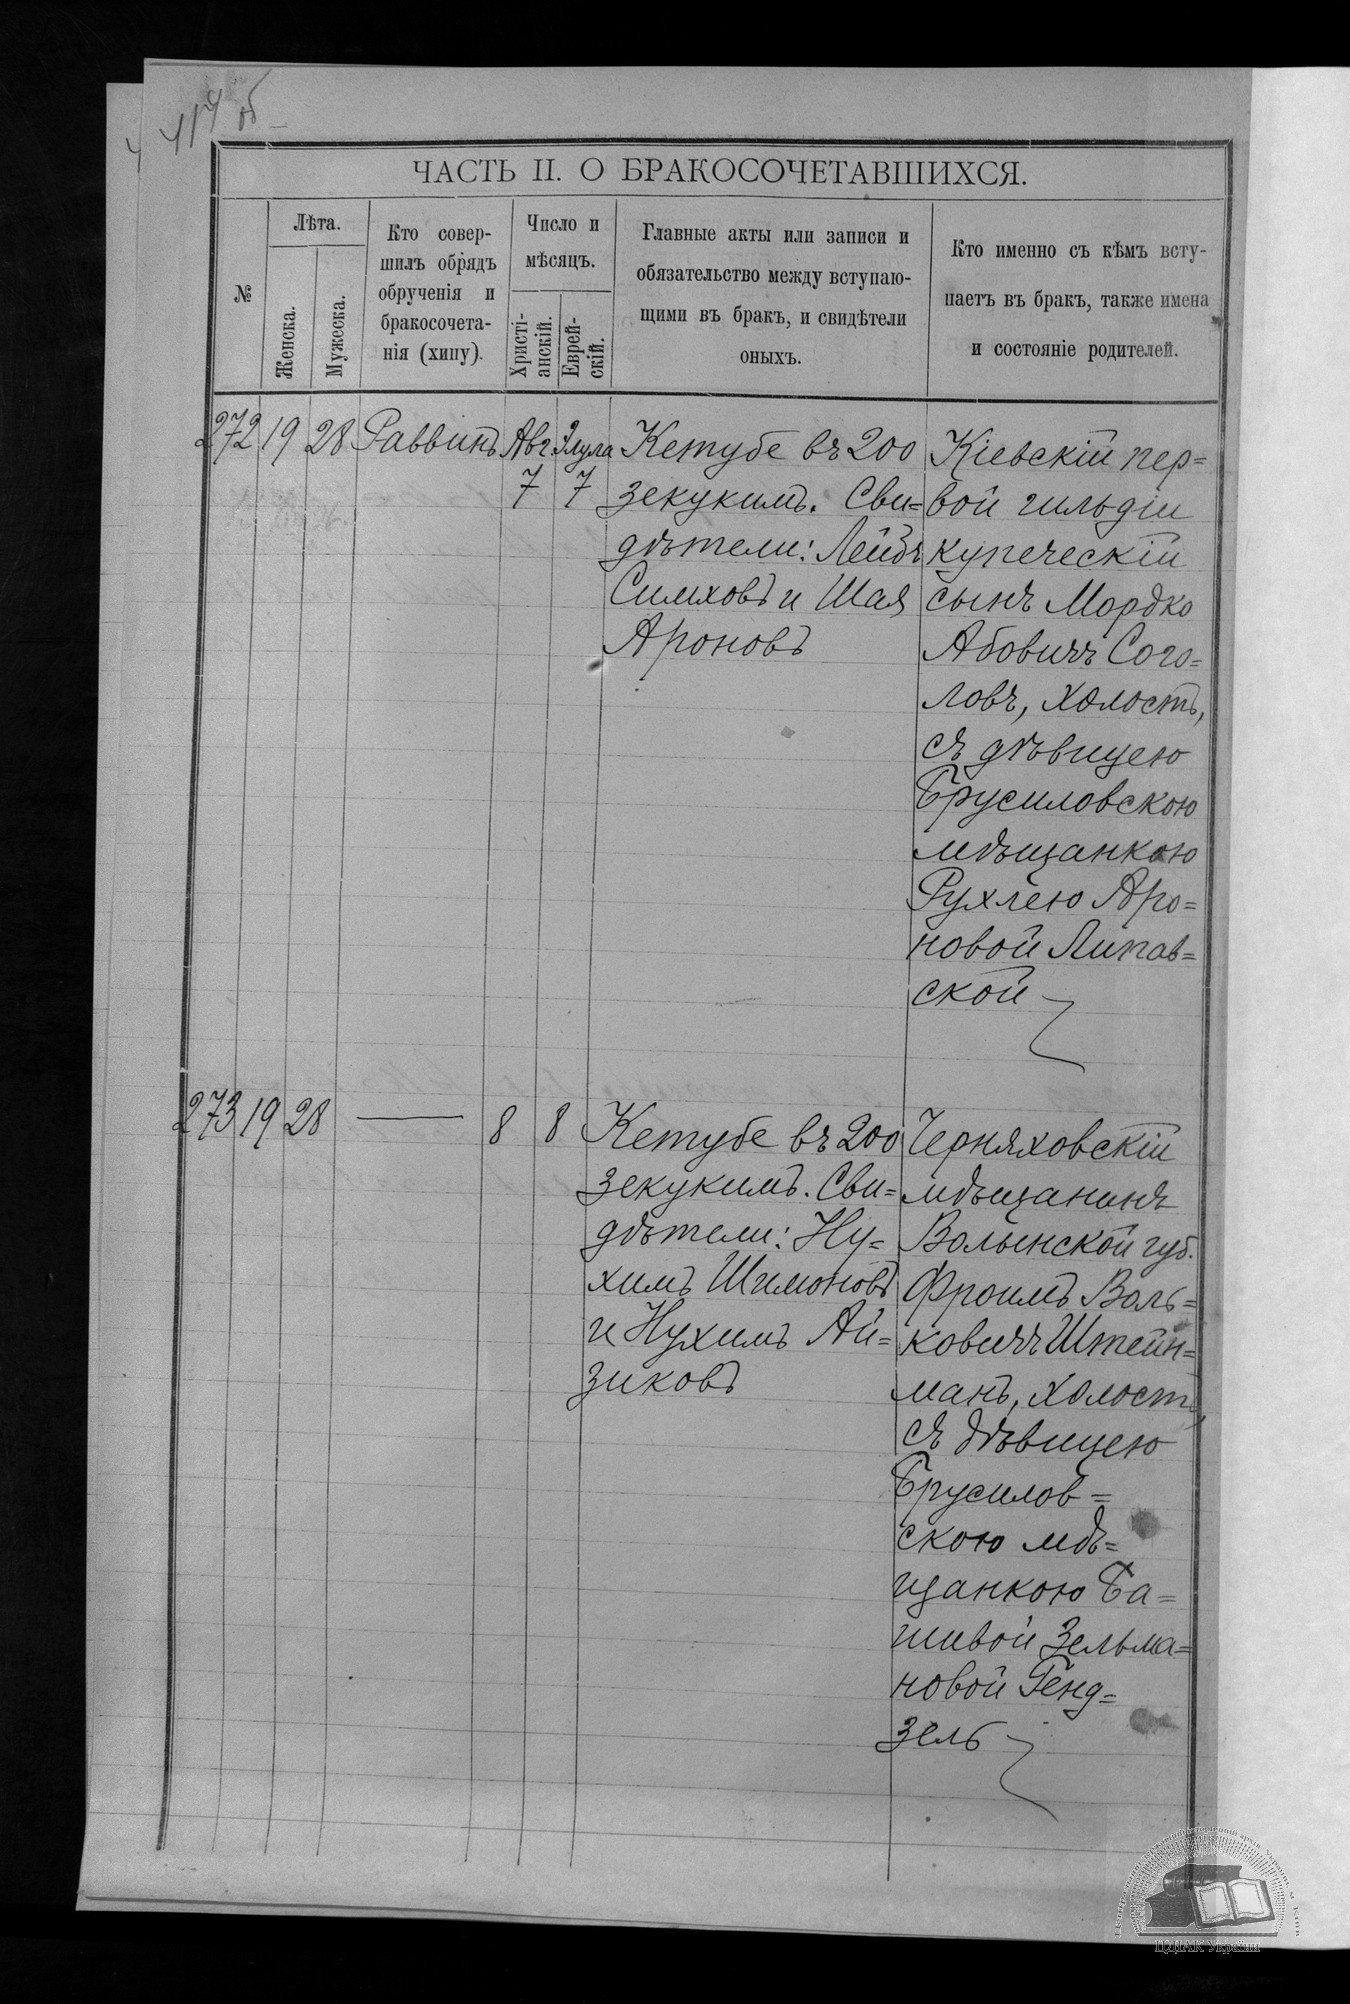 414 об
ЧАСТЬ II. О БРАКОСОЧЕТАВШИХСЯ.
№
Лѣта.
Женска.
Мужеска.
Кто совер-
шилъ обрядъ
обрученія и
бракосочета-
нія (хипу).
Число и
мѣсяцъ.
Христі-
анскій.
Еврей-
скій.
Главные акты или записи и
обязательство между вступаю-
щими въ бракъ, и свидѣтели
оныхъ.
Кто именно съ кѣмъ всту-
паетъ въ бракъ, также имена
и состояніе родителей.
272
19
28
Раввинъ
Авг.
7
Элула
7
Кетубе въ 200
зекукимъ. Сви=
дѣтели: Лейбъ
Симховъ и Шая
Ароновъ
Кіевскій пер=
вой гильдіи
купеческій
сынъ Мордко
Абовичъ Сого=
ловъ, холостъ,
съ дѣвицею
Брусиловскою
мѣщанкою
Рухлею Аро=
новой Липав=
ской
273
19
28
—
8
8
Кетубе въ 200
зекукимъ. Сви=
дѣтели: Ну=
химъ Шимоновъ
и Нухимъ Ай=
зиковъ
Черняховскій
мѣщанинъ
Волынской губ.
Фроимъ Воль=
ковичъ Штейн=
манъ, холостъ,
съ дѣвицею
Брусилов=
скою мѣ=
щанкою Ба=
шивой Зельма=
новой Генд=
зель
ЦДІАК України